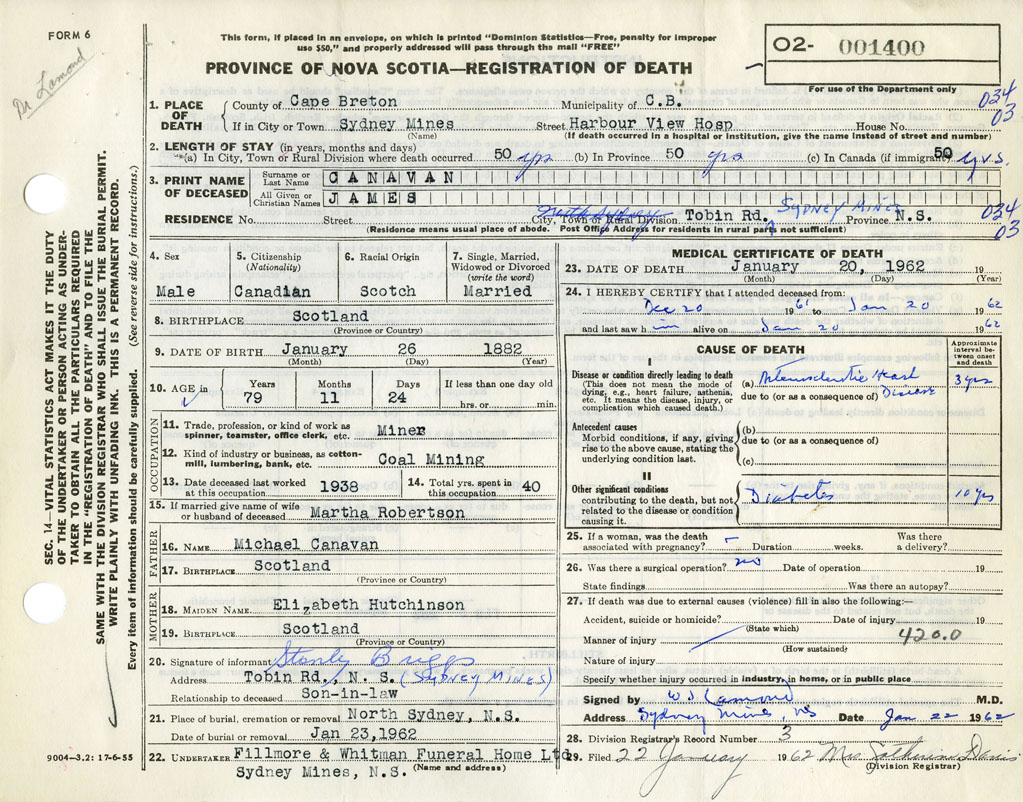 FORM 6
Dr Lamond
This form, if placed in an envelope, on which is printed "Dominion Statistics—Free, penalty for improper
use $50," and properly addressed will pass through the mail "FREE"
PROVINCE OF NOVA SCOTIA—REGISTRATION OF DEATH
02- 001400
For use of the Department only
034
03
1. PLACE OF DEATH
County of Cape Breton Municipality of C.B.
If in City or Town Sydney Mines Street Harbour View Hosp House No.
(Name) (If death occurred in a hospital or institution, give the name instead of street and number)
2. LENGTH OF STAY (in years, months and days)
(a) In City, Town or Rural Division where death occurred 50 yrs (b) In Province 50 yrs (c) In Canada (if immigrant) 50 yrs.
3. PRINT NAME OF DECEASED
Surname or Last Name CANAVAN
All Given or Christian Names JAMES
RESIDENCE No. Street North Sydney City, Town or Rural Division Tobin Rd., SYDNEY MINES Province N.S. 034
03
(Residence means usual place of abode. Post Office Address for residents in rural parts not sufficient)
4. Sex
Male
5. Citizenship
(Nationality)
Canadian
6. Racial Origin
Scotch
7. Single, Married,
Widowed or Divorced
(write the word)
Married
8. BIRTHPLACE Scotland
(Province or Country)
9. DATE OF BIRTH January 26 1882
(Month) (Day) (Year)
10. AGE in Years Months Days If less than one day old
79 11 24 hrs. or min.
OCCUPATION
11. Trade, profession, or kind of work as
spinner, teamster, office clerk, etc. Miner
12. Kind of industry or business, as cotton-
mill, lumbering, bank, etc. Coal Mining
13. Date deceased last worked
at this occupation 1938
14. Total yrs. spent in
this occupation 40
15. If married give name of wife
or husband of deceased Martha Robertson
FATHER
16. NAME Michael Canavan
17. BIRTHPLACE Scotland
(Province or Country)
MOTHER
18. MAIDEN NAME Elizabeth Hutchinson
19. BIRTHPLACE Scotland
(Province or Country)
20. Signature of informant Stanly Briggs
Address Tobin Rd., N. S. (SYDNEY MINES)
Relationship to deceased Son-in-law
21. Place of burial, cremation or removal North Sydney, N.S.
Date of burial or removal Jan 23,1962
22. UNDERTAKER Fillmore & Whitman Funeral Home Ltd
Sydney Mines, N.S. (Name and address)
MEDICAL CERTIFICATE OF DEATH
23. DATE OF DEATH January 20, 1962 19
(Month) (Day) (Year)
24. I HEREBY CERTIFY that I attended deceased from:
Dec 20 1961 to Jan 20 1962
and last saw him alive on Jan 20 1962
CAUSE OF DEATH
Approximate
interval be-
tween onset
and death
I
Disease or condition directly leading to death
(This does not mean the mode of
dying, e.g., heart failure, asthenia,
etc. It means the disease, injury, or
complication which caused death.)
(a) Arteriosclerotic Heart 3 yrs
due to (or as a consequence of) Disease
Antecedent causes
Morbid conditions, if any, giving
rise to the above cause, stating the
underlying condition last.
(b)
due to (or as a consequence of)
(c)
II
Other significant conditions
contributing to the death, but not
related to the disease or condition
causing it.
Diabetes 10 yrs
25. If a woman, was the death
associated with pregnancy? Duration weeks. Was there
a delivery?
26. Was there a surgical operation? no Date of operation 19
State findings Was there an autopsy?
27. If death was due to external causes (violence) fill in also the following:—
Accident, suicide or homicide? Date of injury 19
(State which)
420.0
Manner of injury
(How sustained)
Nature of injury
Specify whether injury occurred in industry, in home, or in public place
Signed by W J Lamond M.D.
Address Sydney Mines, NS Date Jan 22 1962
28. Division Registrar's Record Number 3
29. Filed 22 January 1962 Mrs Davis
(Division Registrar)
SEC. 14—VITAL STATISTICS ACT MAKES IT THE DUTY
OF THE UNDERTAKER OR PERSON ACTING AS UNDER-
TAKER TO OBTAIN ALL THE PARTICULARS REQUIRED
IN THE "REGISTRATION OF DEATH" AND TO FILE THE
SAME WITH THE DIVISION REGISTRAR WHO SHALL ISSUE THE BURIAL PERMIT.
WRITE PLAINLY WITH UNFADING INK. THIS IS A PERMANENT RECORD.
Every item of information should be carefully supplied. (See reverse side for instructions.)
9004—3.2: 17-6-55